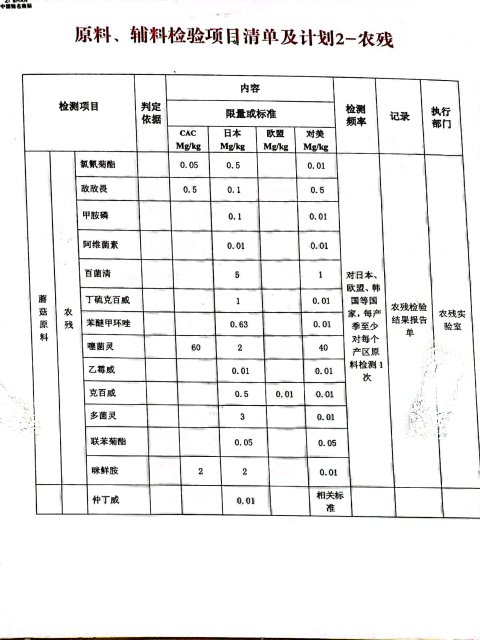 中国驰名商标
原料、辅料检验项目清单及计划2-农残
检测项目 判定依据 内容 检测频率 记录 执行部门
限量或标准
CAC Mg/kg 日本 Mg/kg 欧盟 Mg/kg 对美 Mg/kg
蘑菇原料 农残
氯氰菊酯 0.05 0.5 0.01
敌敌畏 0.5 0.1 0.5
甲胺磷 0.1 0.01
阿维菌素 0.01 0.01
百菌清 5 1
丁硫克百威 1 0.01
苯醚甲环唑 0.63 0.01
噻菌灵 60 2 40
乙霉威 0.01 0.01
克百威 0.5 0.01 0.01
多菌灵 3 0.01
联苯菊酯 0.05 0.05
咪鲜胺 2 2 0.01
仲丁威 0.01 相关标准
对日本、
欧盟、韩
国等国
家，每产
季至少
对每个
产区原
料检测1
次
农残检验
结果报告
单
农残实
验室